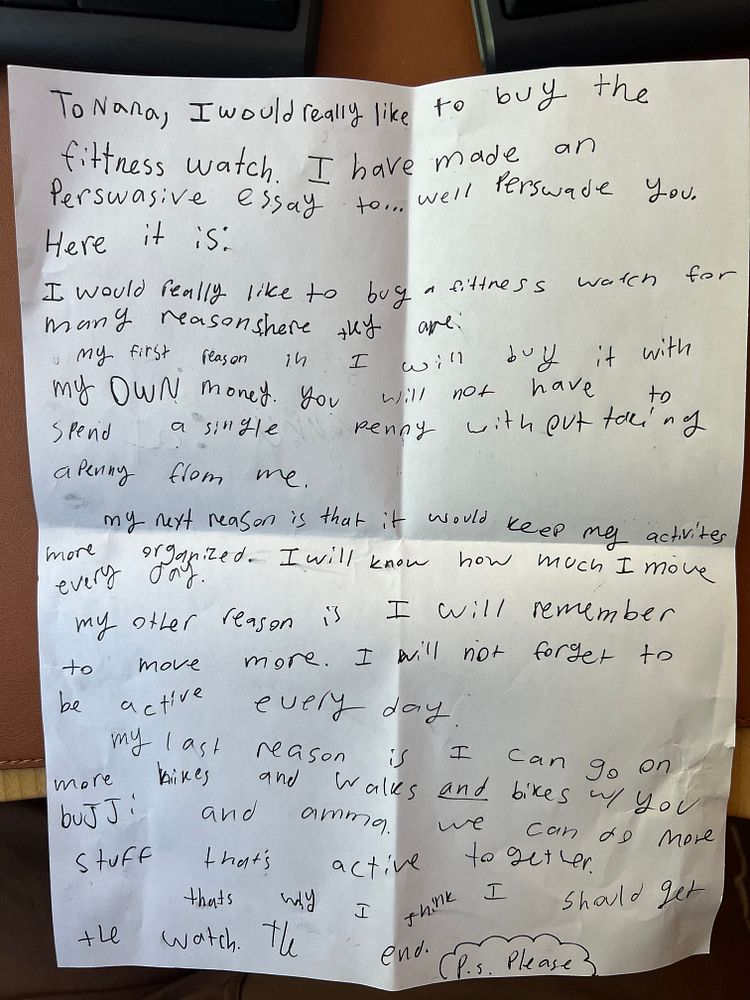 To Nana, I would really like to buy the
fittness watch. I have made an
Perswasive essay to... well Perswade you.
Here it is:
I would really like to buy a fittness watch for
many reasons here they are:
my first reason is I will buy it with
my OWN money. you will not have to
spend a single penny without taking
a penny from me.
my next reason is that it would keep my activites
more organized. I will know how much I move
every day.
my other reason is I will remember
to move more. I will not forget to
be active every day.
my last reason is I can go on
more hikes and walks and bikes w/ you
buJJi and amma. we can do more
stuff that's active together.
thats why I think I should get
the watch. The end.
(P.s. Please